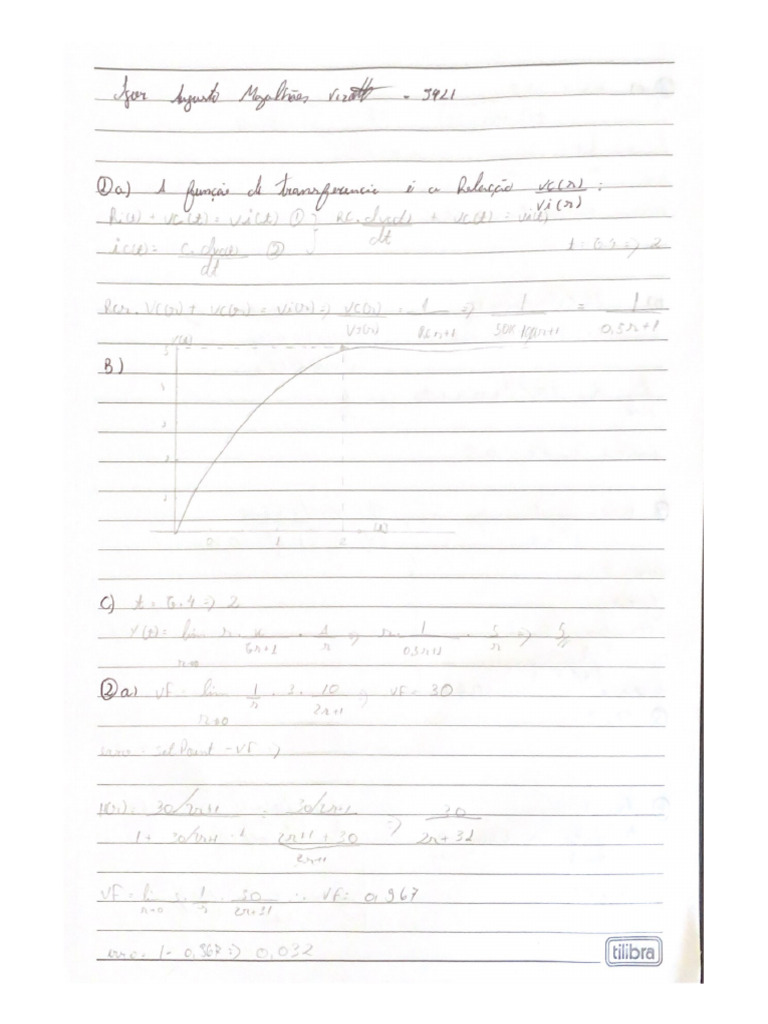 Igor Augusto Magalhães - 3421
① a) A função de transferencia é a Relação Vc(s)/Vi(s) :
Ri(t) + Vc(t) = Vi(t) ① } RC. dvc(t)/dt + Vc(t) = Vi(t)
ic(t) = C. dvc(t)/dt ② t = 5.4 => 2
RCs. Vc(s) + Vc(s) = Vi(s) => Vc(s)/Vi(s) . 1/RCs+1 => = 1/0,5s+1
B)
5
0 1 2
C) t = 5.4 => 2
Y(t) = lim s. . 1/s => s. 1/0,5s+1 . 5/s => 5
s→0
② a) VF = lim 1/s . 3. 10/2s+1 VF = 30
s→0
erro = setPoint - VF =>
H(s) = 30/2s+1 / 1 + 30/2s+1 . 1 = 30/2s+1 / 2s+1 + 30/2s+1 => 30/2s+31
VF = lim s. 1/s . 30/2s+31 ∴ VF = 0,967
s→0
erro = 1 - 0,967 => 0,032
tilibra